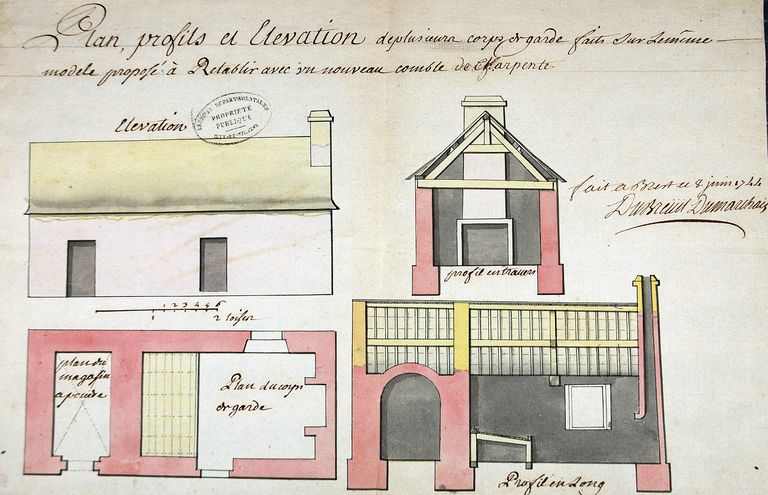 Plan, profils et Elevation de plusieurs corps de garde faits sur Le même
modele proposé à Retablir avec un nouveau comble de Charpente
Elevation
ARCHIVES DEPARTEMENTALES
PROPRIÉTÉ
PUBLIQUE
ILLE-ET-VILAINE
fait a Brest ce 8. juin 1744
DuBreüil Dumarchais
profil en travers
1 2 3 4 5 6
1 2 toises
plan du
magasin
a poudre
Plan du corps
de garde
Profil en Long